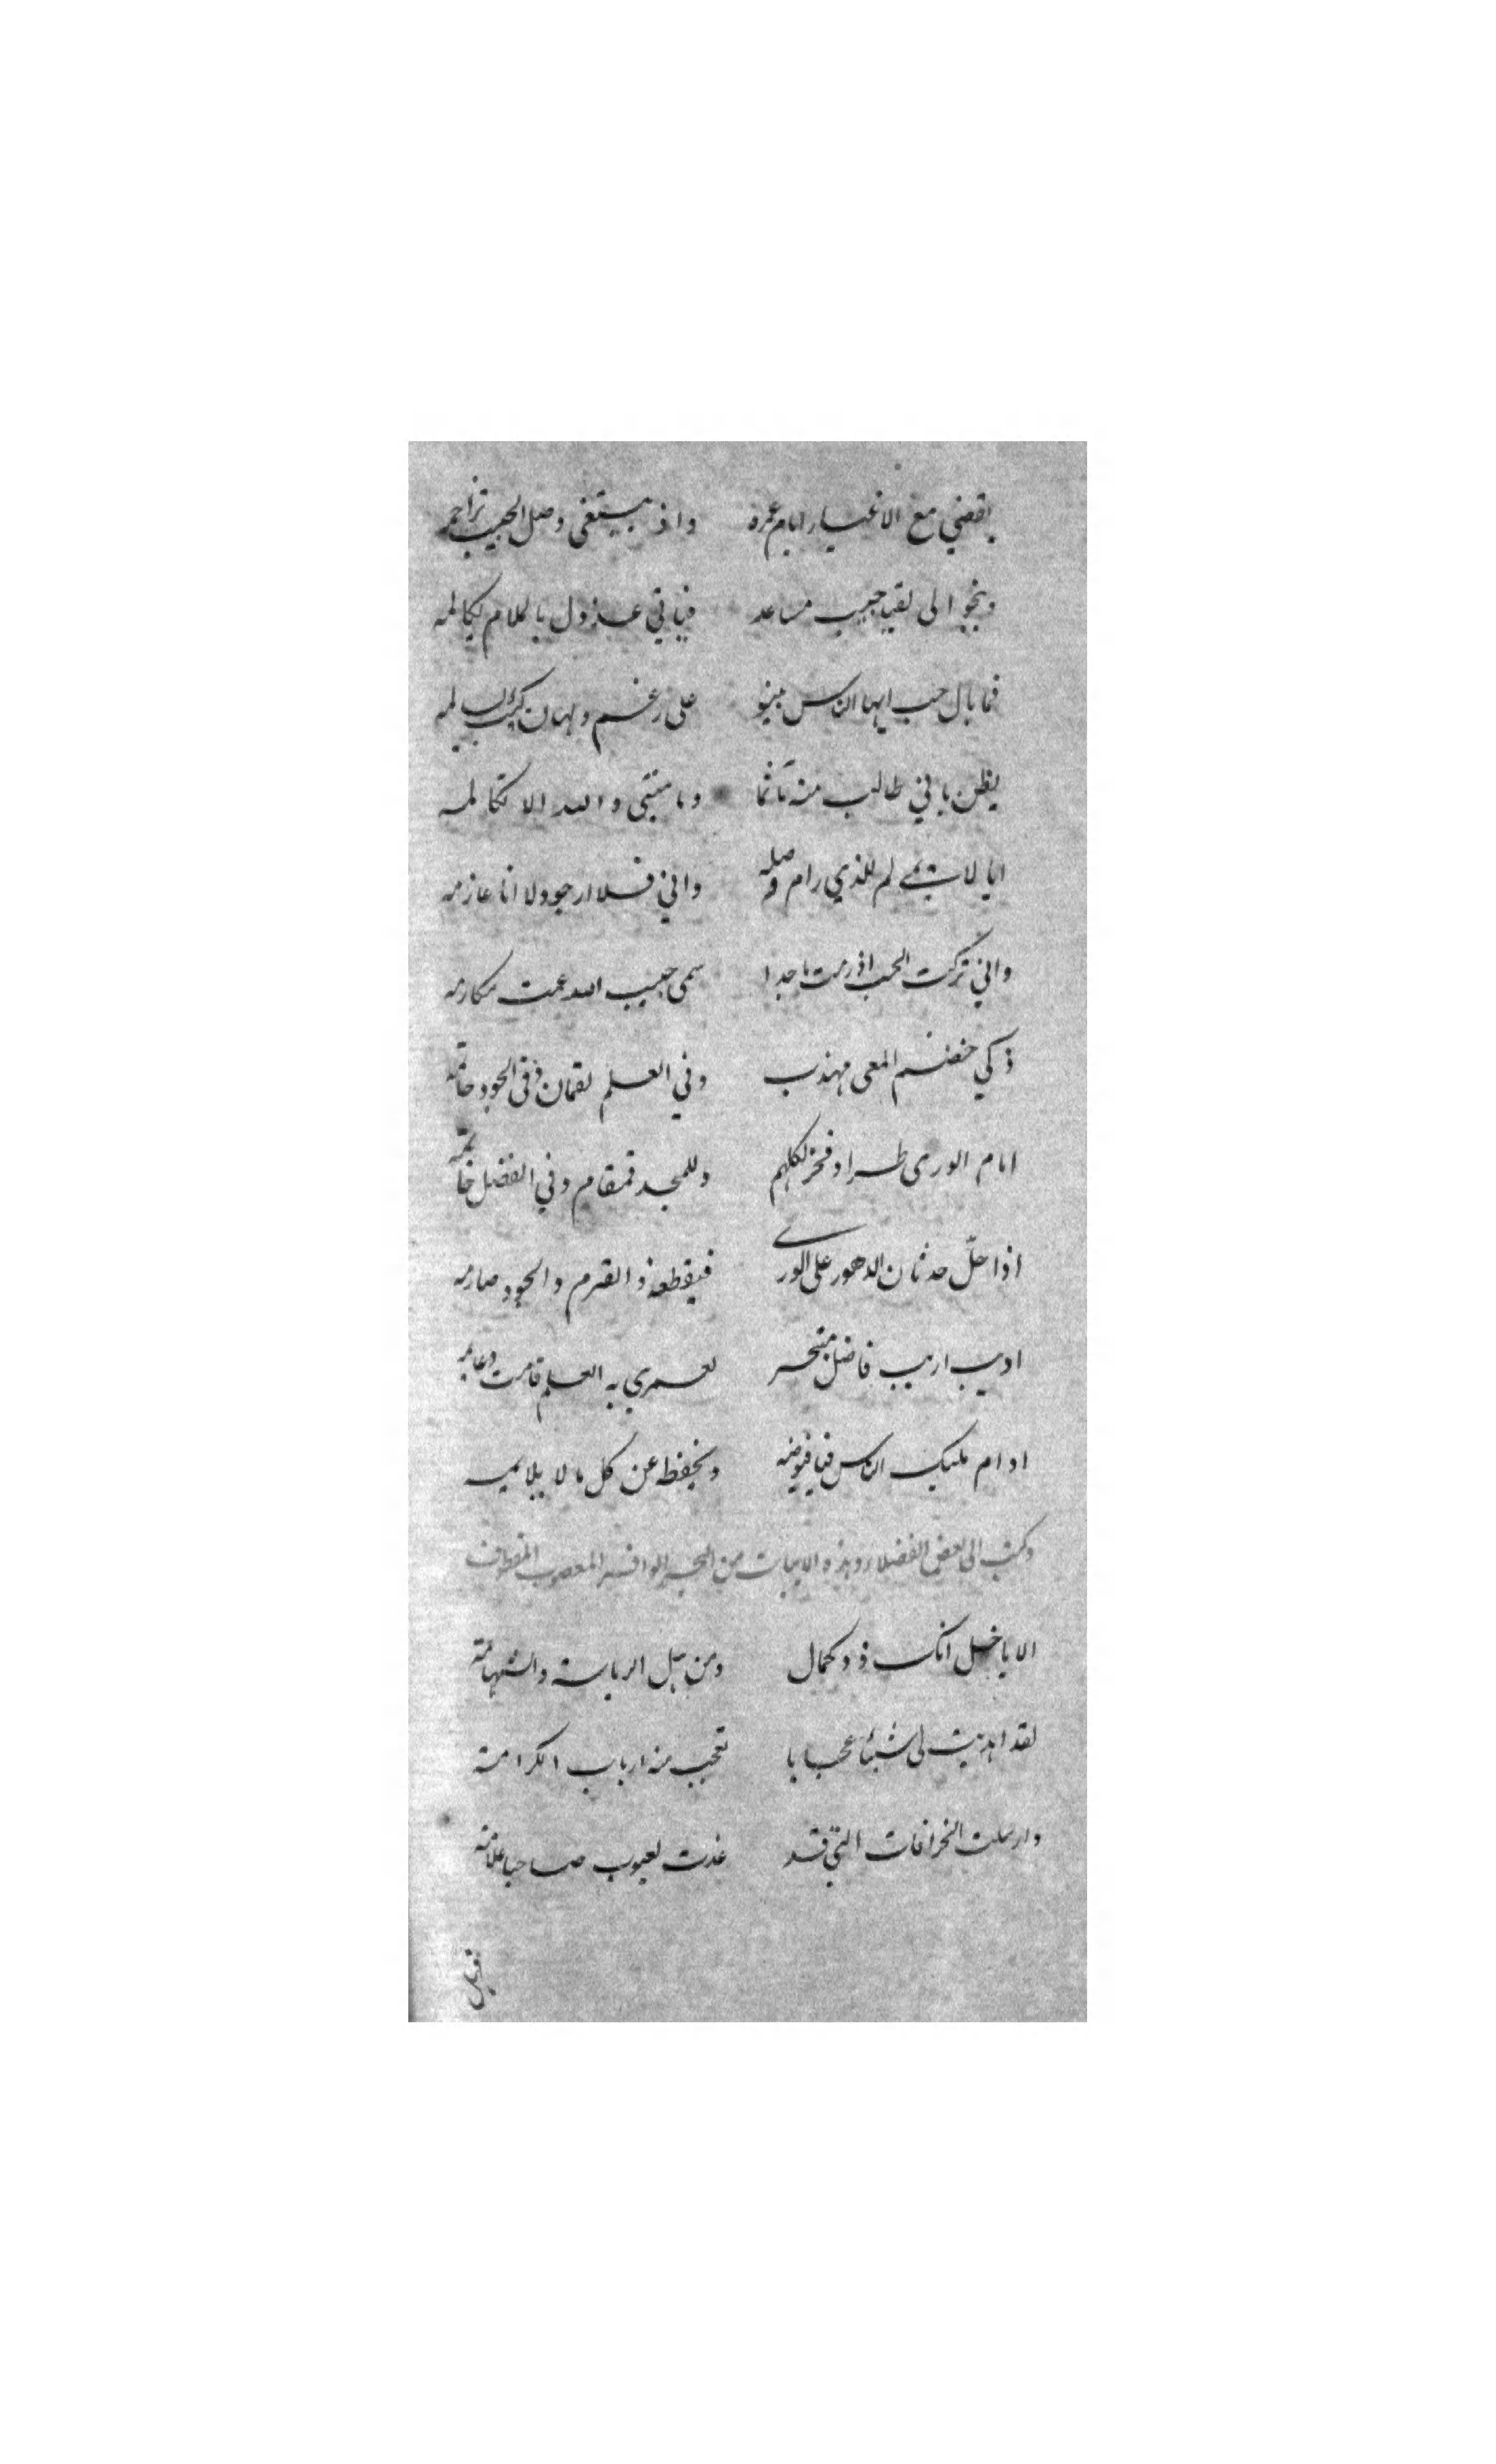 يقضي مع الاغيار ايام عمره واذ يبتغى وصل الحبيب تزاحمه
وينجو الى لقيا حبيب مساعد فياتي عذول بالملام يكالمه
فما بال حب ايها الناس على رغم ولهان
يظن باني طالب منه مأثما وما منيتى والله الا تكالمه
ايا لائمي لم للذي رام وصله واني فلا ارجو ولا انا عازمه
واني تركت الحب اذ رمت ماجدا سمى حبيب الله عمت مكارمه
ذكي خضم المعى مهذب وفي العلم لقمان وفى الجود حاتمه
امام الورى طرا وفخر لكلهم وللمجد قمقام وفي الفضل خاتمه
اذا حلّ حدثان الدهور على الورى فيقطعه ذو القرم والجود صارمه
اديب اريب فاضل متبحر لعمري به العلم قامت دعايمه
ادام مليك الناس فينا فيوضه ويحفظ عن كل ما لا يلايمه
وكتب الى بعض الفضلاء وهذه الابيات من البحر الوافر المعصوب المقطوف
الا يا خل انك ذو كمال ومن اهل الرياسة والشهامة
لقد اهديت لى شيئا عجابا تعجب منه ارباب الكرامة
وارسلت الخرافات التي قد غدت لعيوب صاحبها علامة